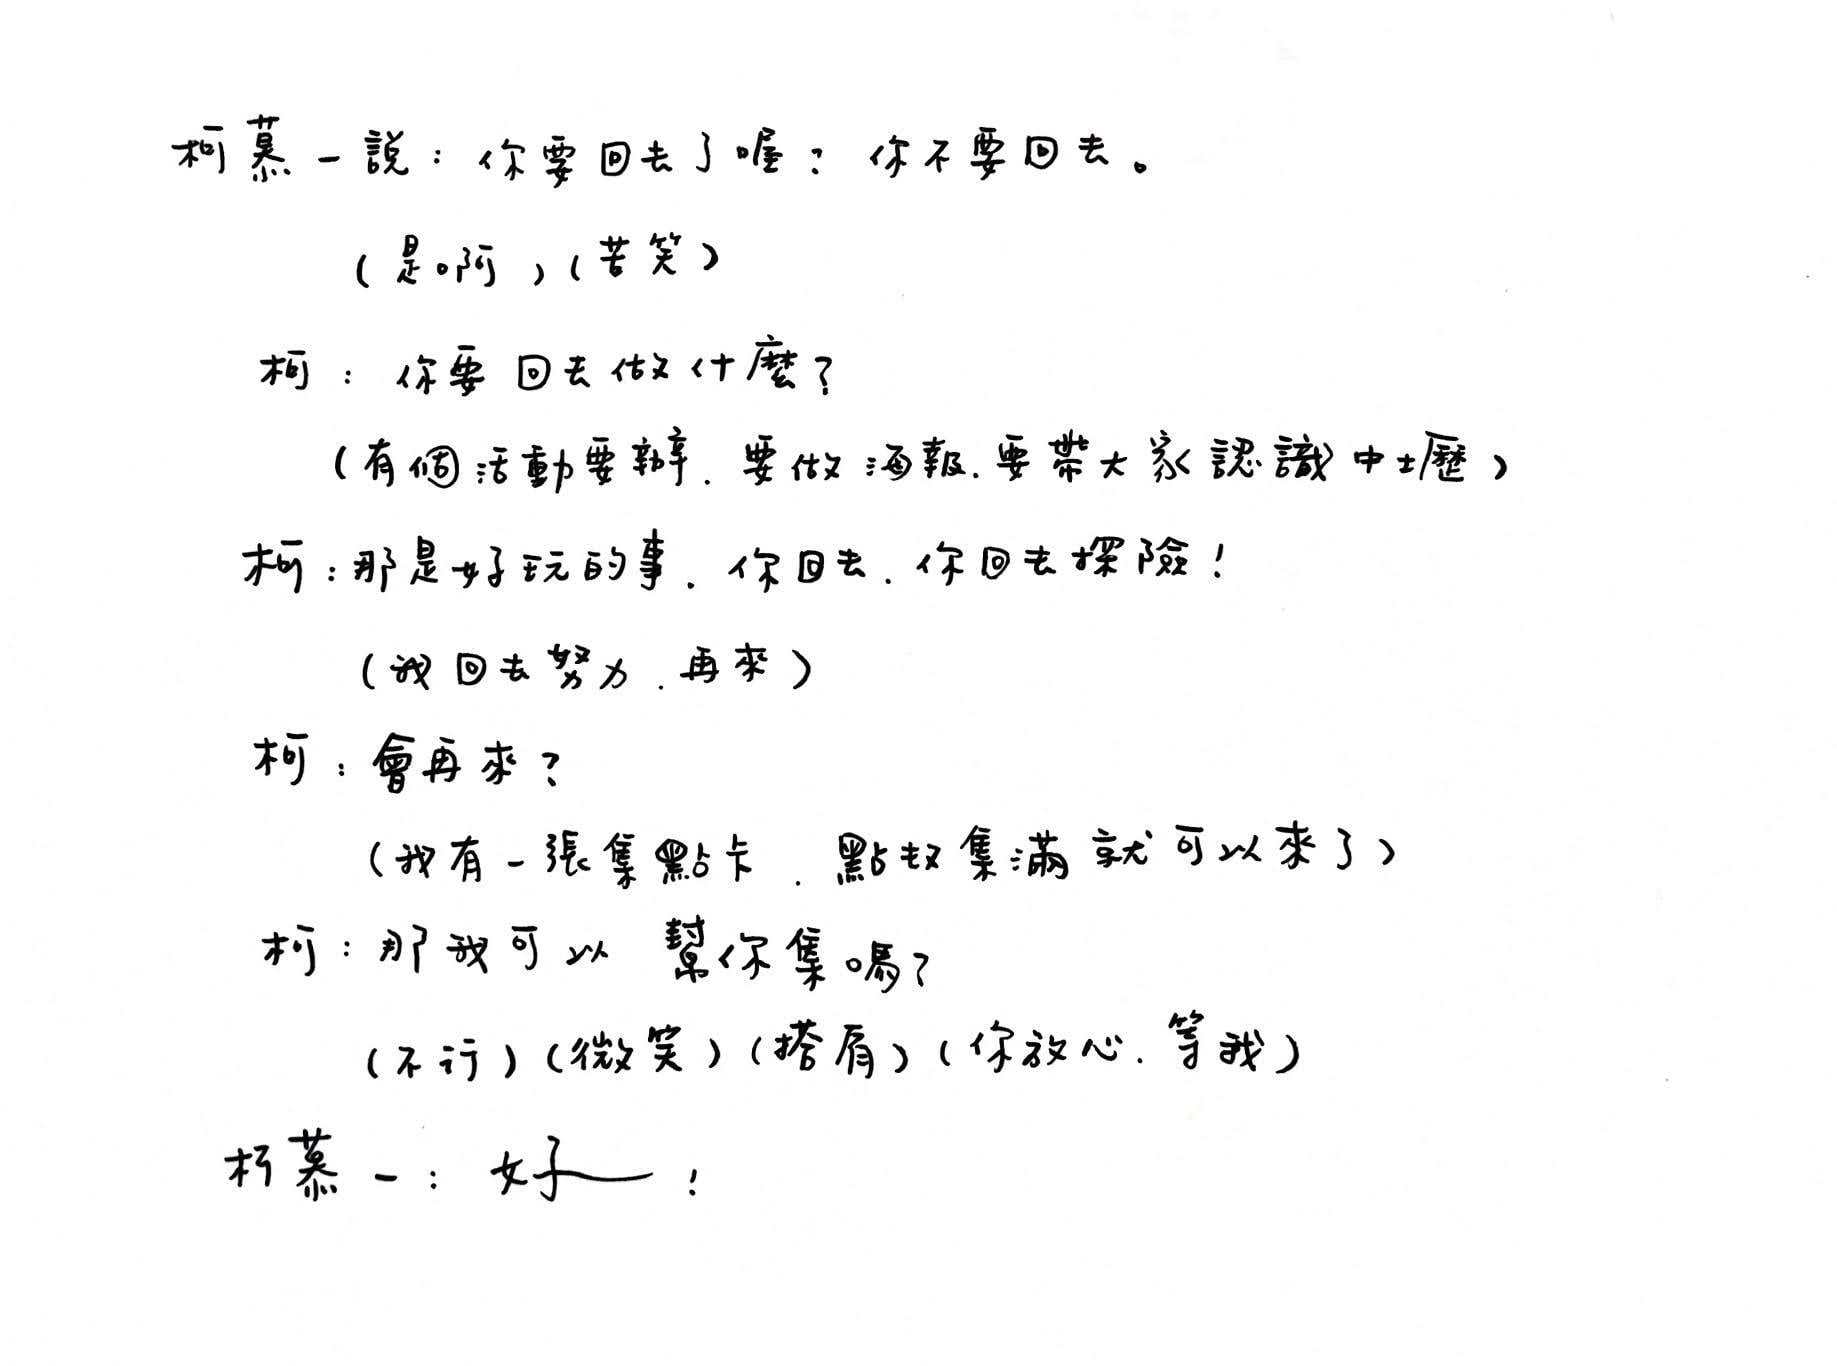 柯慕一說：你要回去了喔？你不要回去。
（是啊）（苦笑）
柯：你要回去做什麼？
（有個活動要辦．要做海報．要帶大家認識中壢）
柯：那是好玩的事．你回去．你回去探險！
（我回去努力．再來）
柯：會再來？
（我有一張集點卡．點數集滿就可以來了）
柯：那我可以幫你集嗎？
（不行）（微笑）（搭肩）（你放心．等我）
柯慕一：好—！